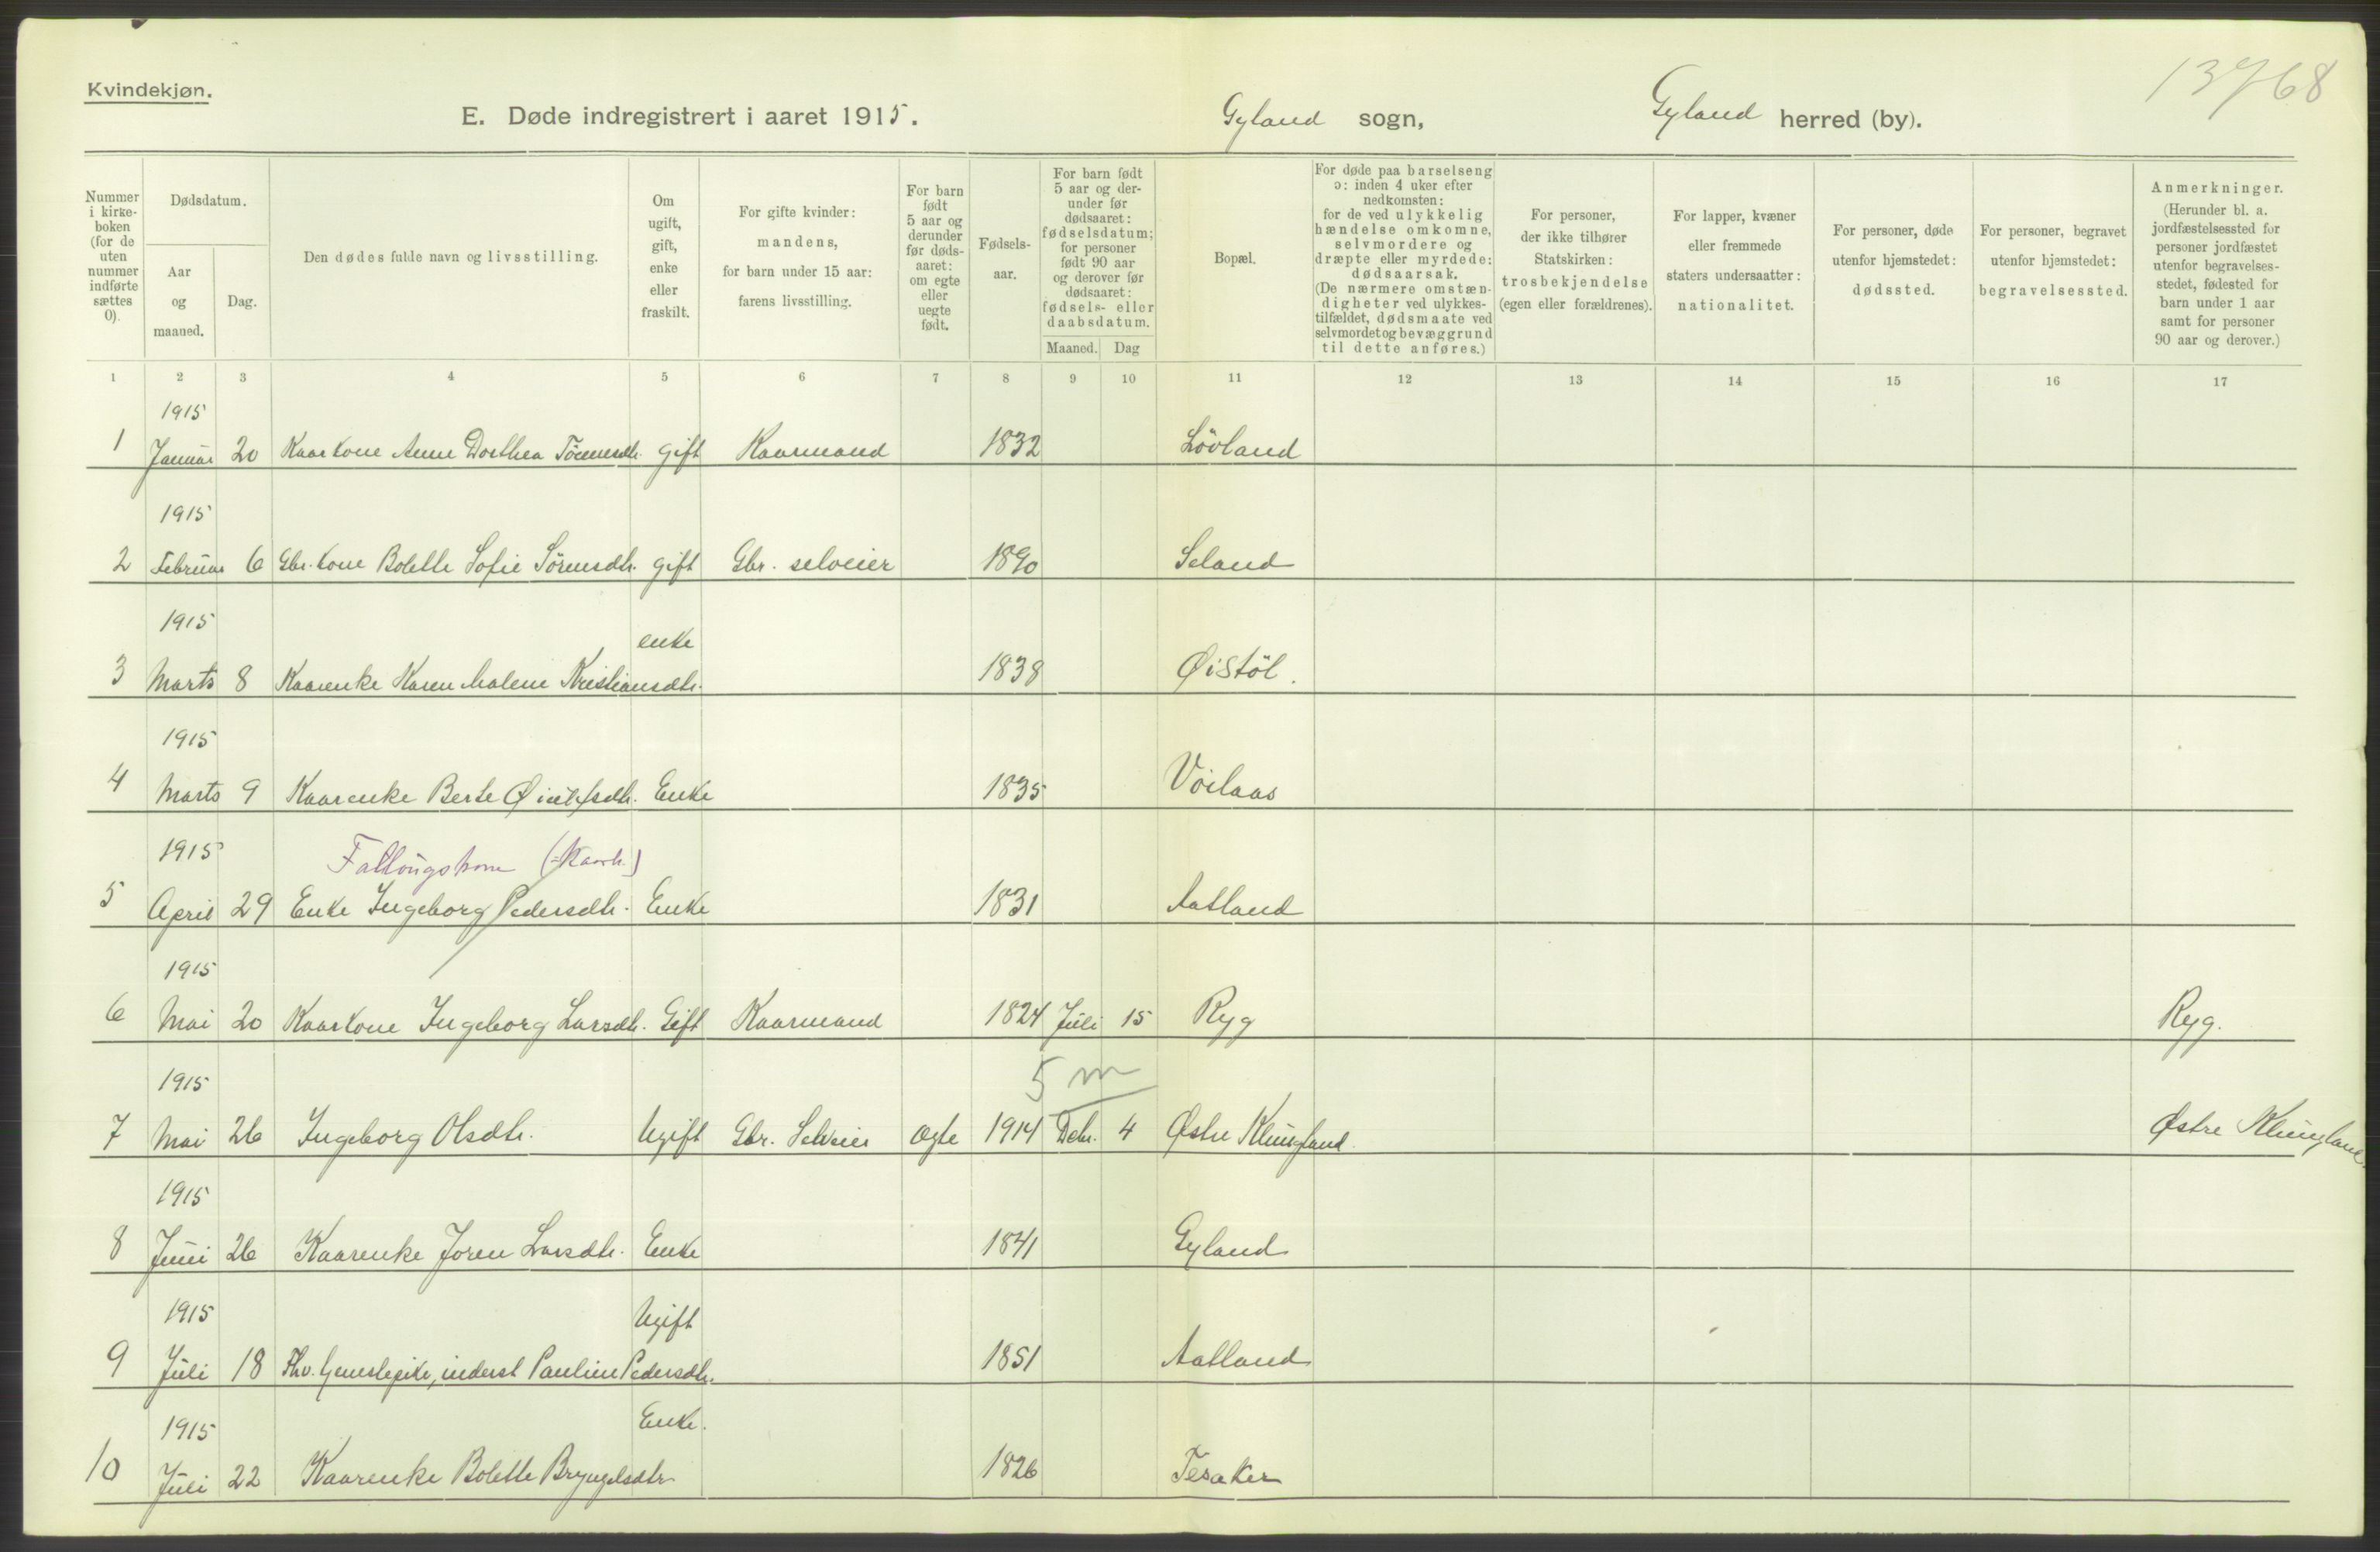 Kvindekjøn.
13768
E. Døde indregistrert i aaret 1915. Gyland sogn, Gyland herred (by).
Nummer i kirkeboken (for de uten nummer indførte sættes 0).
Dødsdatum.
Aar og maaned.
Dag.
Den dødes fulde navn og livsstilling.
Om ugift, gift, enke eller fraskilt.
For gifte kvinder: mandens, for barn under 15 aar: farens livsstilling.
For barn født 5 aar og derunder før dødsaaret: om egte eller uegte født.
Fødselsaar.
For barn født 5 aar og derunder før dødsaaret: fødselsdatum; for personer født 90 aar og derover før dødsaaret: fødsels- eller daabsdatum.
Maaned. Dag
Bopæl.
For døde paa barselseng ɔ: inden 4 uker efter nedkomsten: for de ved ulykkelig hændelse omkomne, selvmordere og dræpte eller myrdede: dødsaarsak. (De nærmere omstændigheter ved ulykkestilfældet, dødsmaate ved selvmordet og bevæggrund til dette anføres.)
For personer, der ikke tilhører Statskirken: trosbekjendelse (egen eller forældrenes).
For lapper, kvæner eller fremmede staters undersaatter: nationalitet.
For personer, døde utenfor hjemstedet: dødssted.
For personer, begravet utenfor hjemstedet: begravelsessted.
Anmerkninger. (Herunder bl. a. jordfæstelsessted for personer jordfæstet utenfor begravelsesstedet, fødested for barn under 1 aar samt for personer 90 aar og derover.)
1 2 3 4 5 6 7 8 9 10 11 12 13 14 15 16 17
1915
1 Januar 20 Kaarkone Anne Dorthea Tönnesdtr. gift Kaarmand 1832 Lövland
1915
2 Februar 6 Gbr. kone Bolette Sofie Sörensdtr. gift Gbr. selveier 1890 Seland
1915
enke
3 Marts 8 Kaarenke Karen Malene Kristiansdtr. 1838 Øistöl.
1915
4 Marts 9 Kaarenke Berte Enke 1835 Voilaas
1915
(=Kaark.)
5 April 29 Enke Ingeborg Pedersdtr. Enke 1831 Aatland
1915
6 Mai 20 Kaarkone Ingeborg Larsdtr. Gift Kaarmand 1824 Juli 15 Ryg Ryg.
1915
5 m
7 Mai 26 Ingeborg Olsdtr. Ugift Gbr. Selveier ægte 1914 Debr. 4 Østre Klungland. Østre Klungland.
1915
8 Juni 26 Kaarenke Joren Larsdtr. Enke 1841 Gyland
1915
Ugift
9 Juli 18 inderst Pauline Pedersdtr. 1851 Aatland
1915
Enke.
10 Juli 22 Kaarenke Bolette Bryngelsdtr 1826 Tesaker